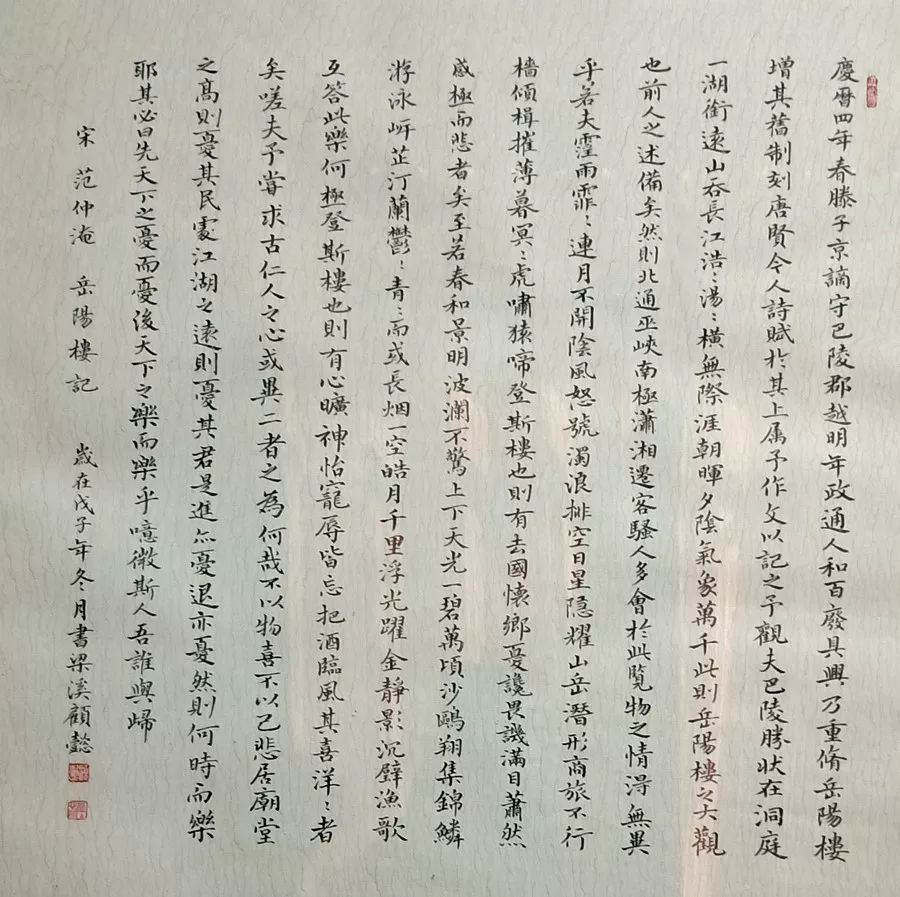 慶曆四年春滕子京謫守巴陵郡越明年政通人和百廢具興乃重脩岳陽樓
增其舊制刻唐賢今人詩賦於其上属予作文以記之予觀夫巴陵勝状在洞庭
一湖銜遠山吞長江浩〻湯〻橫無際涯朝暉夕陰氣象萬千此則岳陽樓之大觀
也前人之述備矣然則北通巫峽南極瀟湘遷客騷人多會於此覽物之情淂無異
乎若夫霪雨霏〻連月不開陰風怒號濁浪排空日星隐耀山岳潛形商旅不行
檣傾楫摧薄暮冥〻虎嘯猿啼登斯樓也則有去國懷鄉憂讒畏譏滿目蕭然
感極而悲者矣至若春和景明波瀾不驚上下天光一碧萬頃沙鷗翔集錦鱗
游泳岸芷汀蘭鬱〻青〻而或長烟一空皓月千里浮光躍金靜影沉璧漁歌
互答此樂何極登斯樓也則有心曠神怡寵辱皆忘把酒臨風其喜洋〻者
矣嗟夫予嘗求古仁人之心或異二者之為何哉不以物喜不以己悲居廟堂
之髙則憂其民處江湖之遠則憂其君是進亦憂退亦憂然則何時而樂
耶其必曰先天下之憂而憂後天下之樂而樂乎噫微斯人吾誰與歸
宋 范仲淹 岳陽樓記 歲在戊子年冬月書梁溪顧懿